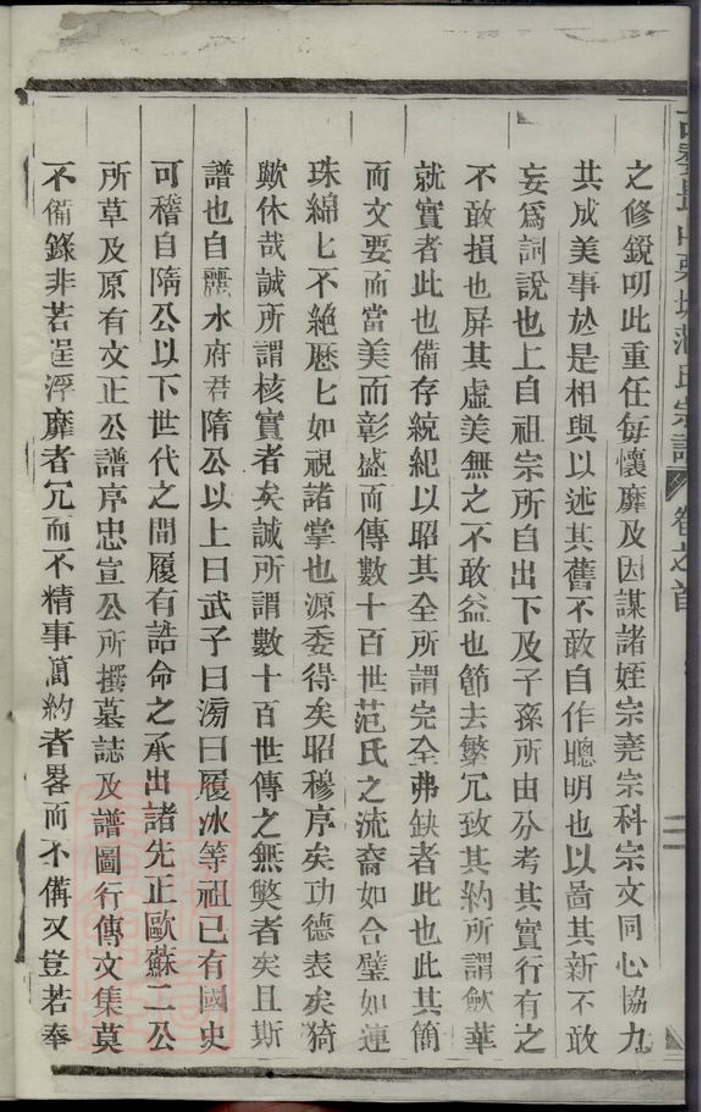 之修銳叨此重任每懷靡及因謀諸姪宗堯宗科宗文同心協九
共成美事於是相與以述其舊不敢自作聰明也以啚其新不敢
妄爲詞說也上自祖宗所自出下及子孫所由分考其實行有之
不敢損也屏其虛美無之不敢益也節去繁冗致其約所謂斂華
就實者此也備存統紀以昭其全所謂完全弗缺者此也此其簡
而文要而當美而彰盛而傳數十百世范氏之流裔如合璧如連
珠綿匕不絕歷匕如視諸掌也源委得矣昭穆序矣功德表矣猗
歟休哉誠所謂核實者矣誠所謂數十百世傳之無獘者矣且斯
譜也自麗水府君隋公以上曰武子曰滂曰履冰等祖已有國史
可稽自隋公以下世代之間履有誥命之承出諸先正歐蘇二公
所草及原有文正公譜序忠宣公所撰墓誌及譜圖行傳文集莫
不備錄非若逞浮靡者冗而不精事簡約者畧而不備又豈若奉
范氏宗譜 卷之首